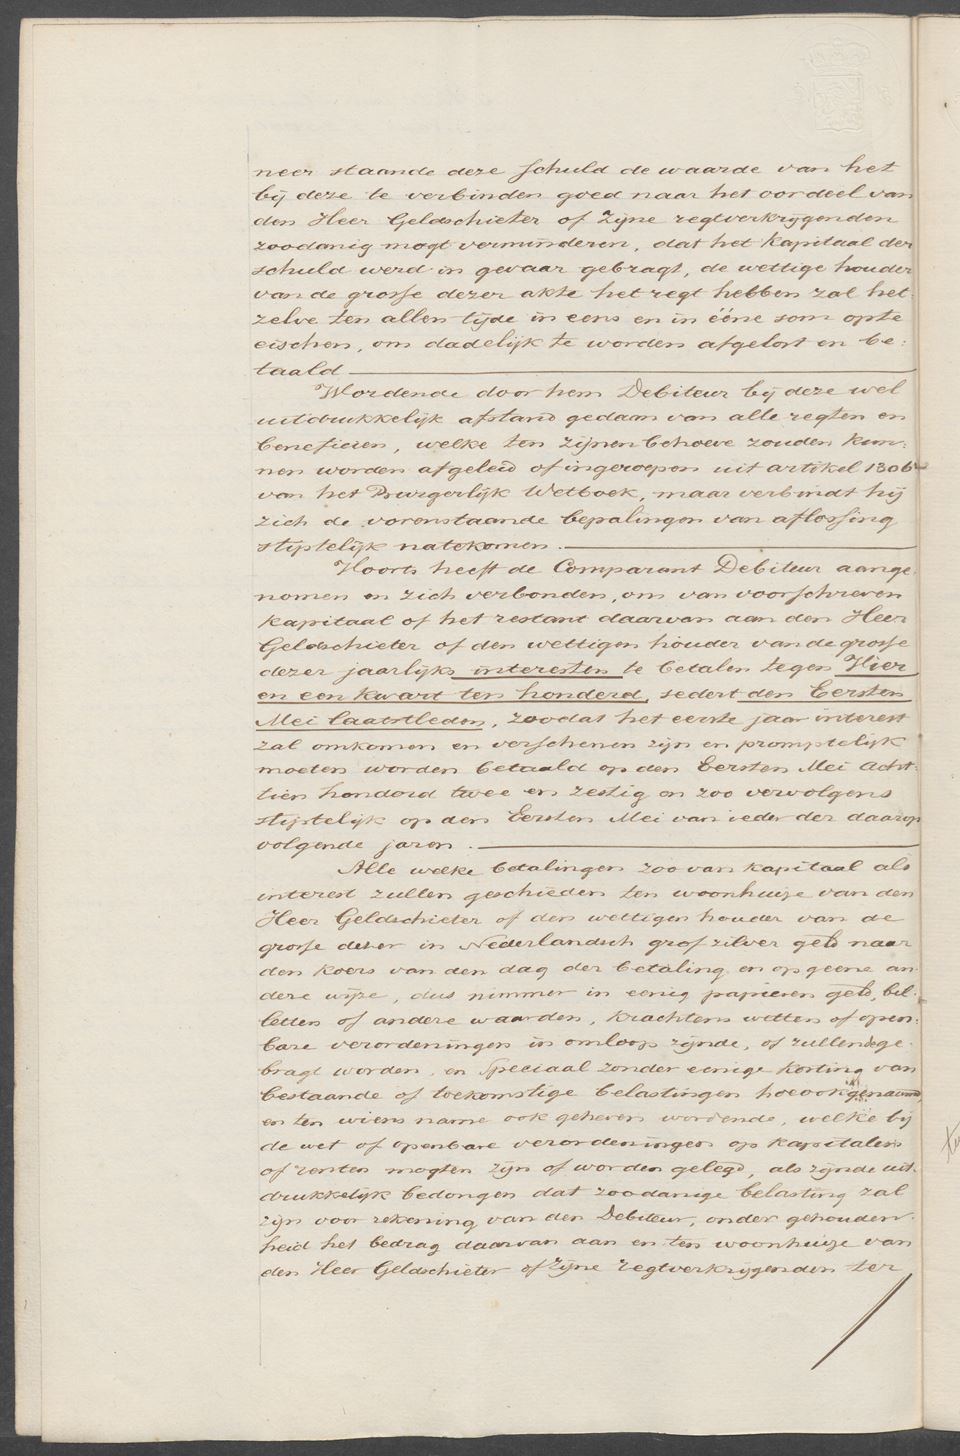 neer staande deze schuld de waarde van het
bij deze te verbinden goed naar het oordeel van
den Heer Geldschieter of zijne regtverkrijgenden
zoodanig mogt verminderen, dat het kapitaal der
schuld werd in gevaar gebragt, de wettige houder
van de grosse dezer akte het regt hebben zal het-
zelve ten allen tijde in eens en in ééne som opte
eischen, om dadelijk te worden afgelost en be-
taald
Wordende door hem Debiteur bij deze wel
uitdrukkelijk afstand gedaan van alle regten en
beneficien, welke ten zijnen behoeve zouden kun-
nen worden afgeleid of ingeroepen uit artikel 1306
van het Burgerlijk Wetboek, maar verbindt hij
zich de vorenstaande bepalingen van aflossing
stiptelijk natekomen.
Voorts heeft de Comparant Debiteur aange-
nomen en zich verbonden, om van voorschreven
kapitaal of het restant daarvan aan den Heer
Geldschieter of den wettigen houder van de grosse
dezer jaarlijks interesten te betalen tegen Vier
en een kwart ten honderd, sedert den Eersten
Mei laatstleden, zoodat het eerste jaar interest
zal omkomen en verschenen zijn en promptelijk
moeten worden betaald op den Eersten Mei Acht-
tien honderd twee en zestig en zoo vervolgens
stiptelijk op den Eersten Mei van ieder der daarop
volgende jaren.
Alle welke betalingen zoo van kapitaal als
interest zullen geschieden ten woonhuize van den
Heer Geldschieter of den wettigen houder van de
grosse dezer in Nederlandsch grof zilver geld naar
den koers van den dag der betaling en op geene an-
dere wijze, dus nimmer in eenig papieren geld, bil-
letten of andere waarden, krachtens wetten of open-
bare verordeningen in omloop zijnde, of zullende ge-
bragt worden, en speciaal zonder eenige korting van
bestaande of toekomstige belastingen hoe ook genaamd,
en ten wiens name ook geheven wordende, welke bij
de wet of openbare verordeningen op kapitalen
of renten mogten zijn of worden gelegd, als zijnde uit-
drukkelijk bedongen dat zoodanige belasting zal
zijn voor rekening van den Debiteur, onder gehouden-
heid het bedrag daarvan aan en ten woonhuize van
den Heer Geldschieter of zijne regtverkrijgenden ter